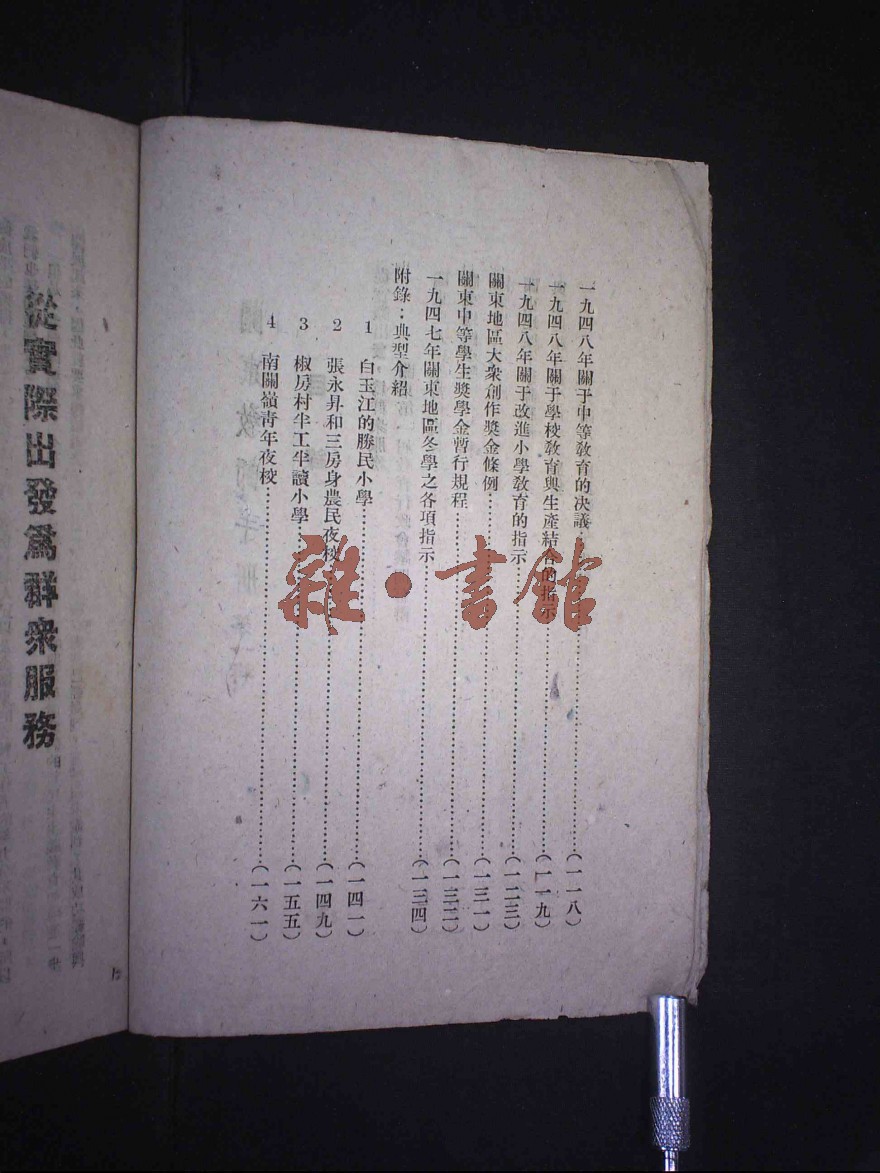 一九四八年關于中等敎育的决議……(一一八)
一九四八年關于學校敎育與生產結合的指示……(一一九)
一九四八年關于改進小學敎育的指示……(一二三)
關東地區大衆創作獎金條例……(一三一)
關東中等學生獎學金暫行規程……(一三二)
一九四七年關東地區冬學之各項指示……(一三四)
附錄：典型介紹
1 白玉江的勝民小學……(一四一)
2 張永昇和三房身農民夜校……(一四九)
3 椒房村半工半讀小學……(一五五)
4 南關嶺靑年夜校……(一六一)
從實際出發爲群衆服務
雜·書館